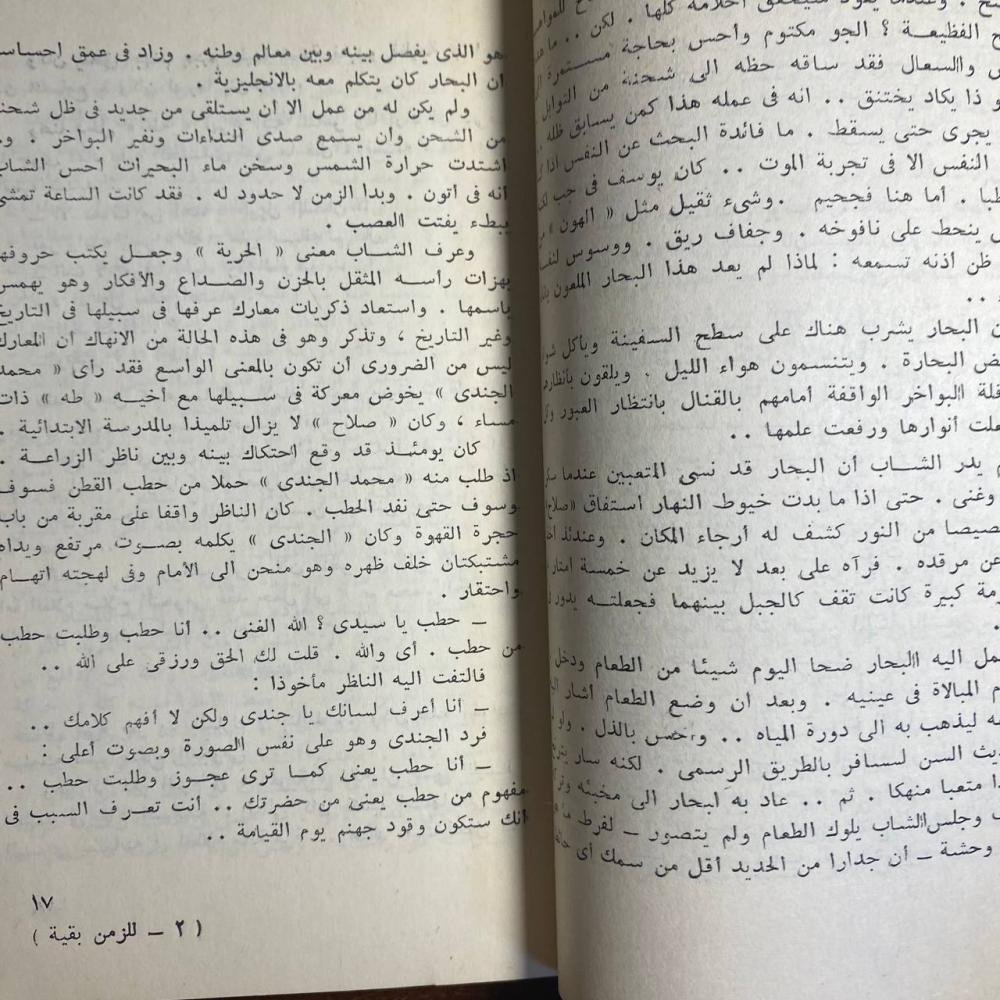 سح . وعندما يعود ستتحقق أحلامه كلها . لكن .. ما هذه
ح الفظيعة ؟ الجو مكتوم وأحس بحاجة مستمرة الى
س والسعال فقد ساقه حظه الى شحنة من التوابل
و ذا يكاد يختنق .. انه فى عمله هذا كمن يسابق ظله
يجرى حتى يسقط . ما فائدة البحث عن النفس اذا
النفس الا فى تجربة الموت .. كان يوسف فى جب
طبا . أما هنا فجحيم . وشىء ثقيل مثل « الهون »
ينحط على نافوخه . وجفاف ريق . ووسوس
ظن أذنه تسمعه : لماذا لم يعد هذا البحار الملعون
..
ن البحار يشرب هناك على سطح السفينة ويأكل
ض البحارة . ويتنسمون هواء الليل . ويلقون بأنظارهم
فلة البواخر الواقفة أمامهم بالقنال بانتظار العبور
علت أنوارها ورفعت علمها ..
م يدر الشاب أن البحار قد نسى المتعبين عندما
وغنى . حتى اذا ما بدت خيوط النهار استفاق « صلاح
صيصا من النور كشف له أرجاء المكان . وعندئذ
عن مرقده . فرآه على بعد لا يزيد عن خمسة أمتار
زمة كبيرة كانت تقف كالجبل بينهما فجعلته يدور
.
مل اليه البحار ضحا اليوم شيئا من الطعام ودخل
م المبالاة فى عينيه . وبعد ان وضع الطعام أشار
ه ليذهب به الى دورة المياه .. وأحس بالذل .
يث السن لسافر بالطريق الرسمى . لكنه سار
ا متعبا منهكا . ثم .. عاد به البحار الى مخبئه
وجلس الشاب يلوك الطعام ولم يتصور ــ لفرط
وحشة ــ أن جدارا من الحديد أقل من سمك أى
هو الذى يفصل بينه وبين معالم وطنه . وزاد فى عمق احساسه
ان البحار كان يتكلم معه بالانجليزية .
ولم يكن له من عمل الا ان يستلقى من جديد فى ظل شحنة
من الشحن وأن يسمع صدى النداءات ونفير البواخر .
اشتدت حرارة الشمس وسخن ماء البحيرات أحس الشاب
أنه فى أتون . وبدا الزمن لا حدود له . فقد كانت الساعة تمشى
ببطء يفتت العصب .
وعرف الشاب معنى « الحرية » وجعل يكتب حروفها
بهزات رأسه المثقل بالحزن والصداع والأفكار وهو يهمس
باسمها . واستعاد ذكريات معارك عرفها فى سبيلها فى التاريخ
وغير التاريخ ، وتذكر وهو فى هذه الحالة من الانهاك أن المعارك
ليس من الضرورى أن تكون بالمعنى الواسع فقد رأى « محمد
الجندى » يخوض معركة فى سبيلها مع أخيه « طه » ذات
مساء ، وكان « صلاح » لا يزال تلميذا بالمدرسة الابتدائية .
كان يومئذ قد وقع احتكاك بينه وبين ناظر الزراعة .
اذ طلب منه « محمد الجندى » حملا من حطب القطن فسوف
وسوف حتى نفد الحطب . كان الناظر واقفا على مقربة من باب
حجرة القهوة وكان « الجندى » يكلمه بصوت مرتفع ويداه
مشتبكتان خلف ظهره وهو منحن الى الأمام وفى لهجته اتهام
واحتقار .
ــ حطب يا سيدى ؟ الله الغنى .. أنا حطب وطلبت حطب
من حطب . أى والله . قلت لك الحق ورزقى على الله ..
فالتفت اليه الناظر مأخوذا :
ــ أنا أعرف لسانك يا جندى ولكن لا أفهم كلامك ..
فرد الجندى وهو على نفس الصورة وبصوت أعلى :
ــ أنا حطب يعنى كما ترى عجوز وطلبت حطب ..
مفهوم من حطب يعنى من حضرتك .. أنت تعرف السبب فى
انك ستكون وقود جهنم يوم القيامة ..
١٧
( ٢ ــ للزمن بقية )